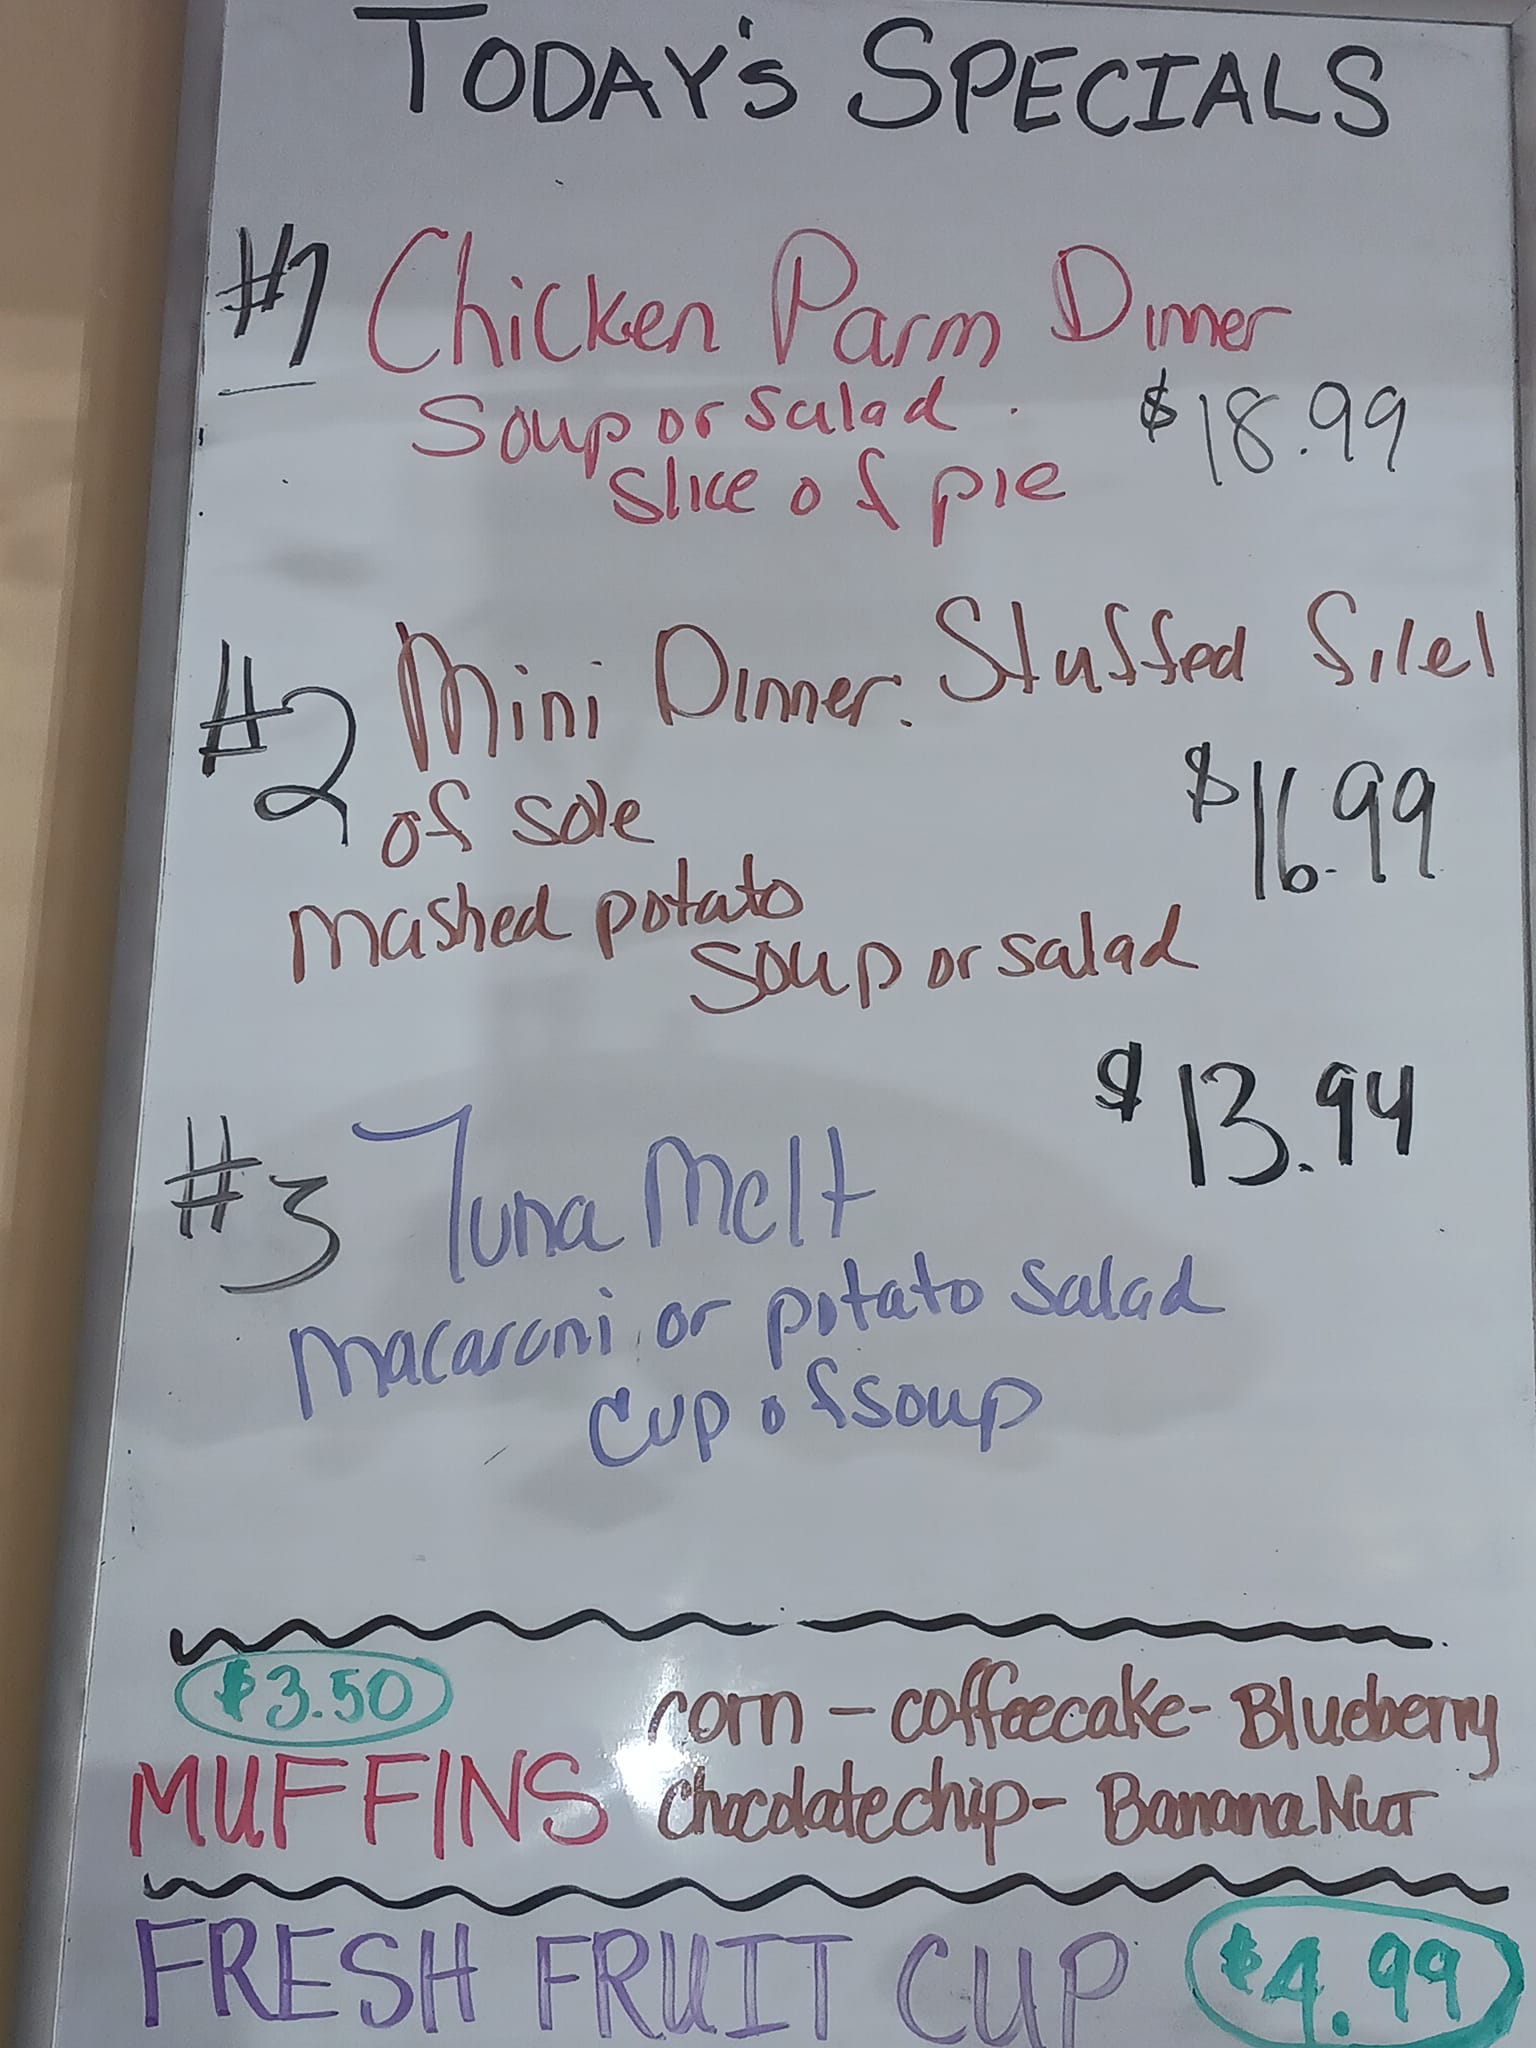 TODAY'S SPECIALS
#1 Chicken Parm Dinner
Soup or salad
$18.99
slice of pie
#2 Mini Dinner. Stuffed filet
of sole
$16.99
mashed potato
soup or salad
$13.94
#3 Tuna Melt
macaroni or potato salad
cup of soup
$3.50
corn - coffeecake - Blueberry
MUFFINS chocolate chip - Banana Nut
FRESH FRUIT CUP $4.99